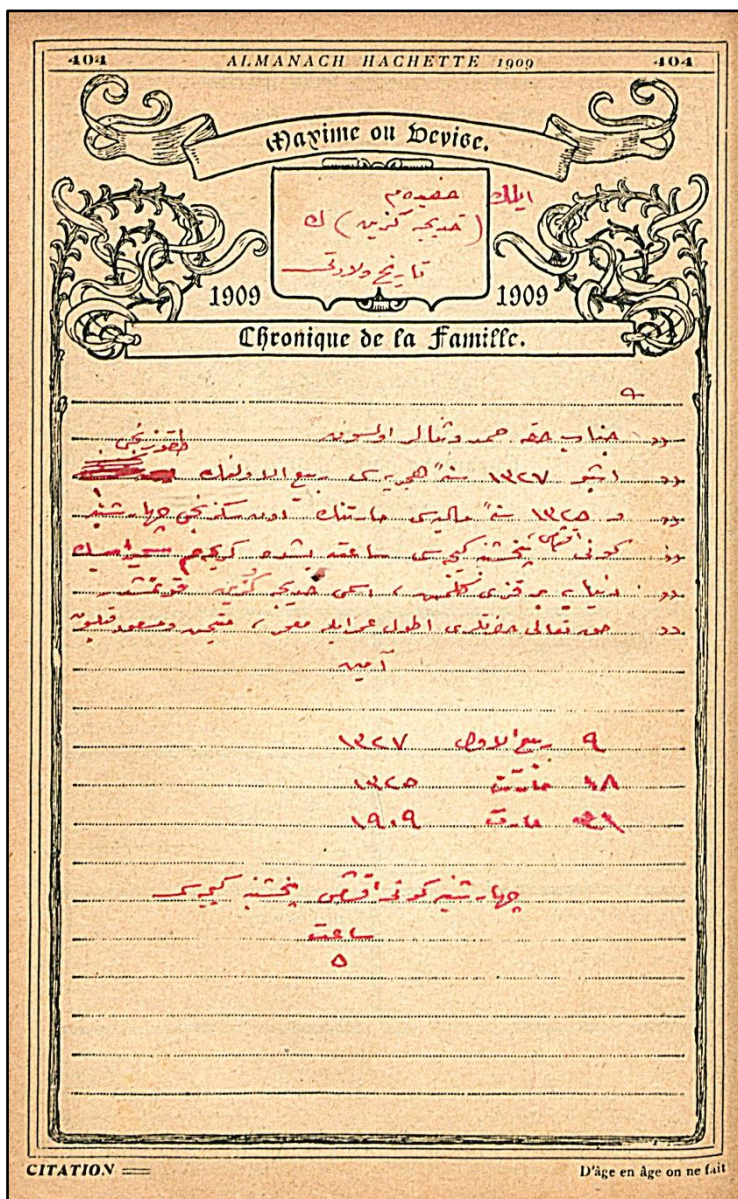 404 ALMANACH HACHETTE 1909 404
Maxime ou Devise.
ایلك حفیده‌م
(خدیجه گزین) ك
تاریخ ولادتی
1909 1909
Chronique de la Famille.
جناب حقه حمد و ثنالر اولسون
اشبو ١٣٢٧ سنهٔ هجریه‌سی ربیع الاولنك طقوزنجی
و ١٣٢٥ سنهٔ مالیه‌سی مارتنك اون سكزنجی چهارشنبه
كونی آقشامی پنجشنبه كیجه‌سی ساعت بشده كریمه‌م
دنیایه بر قزی كلمش، اسمی خدیجه گزین قونمشدر
حق تعالی حضرتلری اطول عمر ایله معمر، و مسعود
آمین
٩ ربیع الاول ١٣٢٧
١٨ مارت ١٣٢٥
مارت ١٩٠٩
چهارشنبه كونی آقشامی پنجشنبه كیجه‌سی
ساعت
٥
CITATION D'âge en âge on ne fait